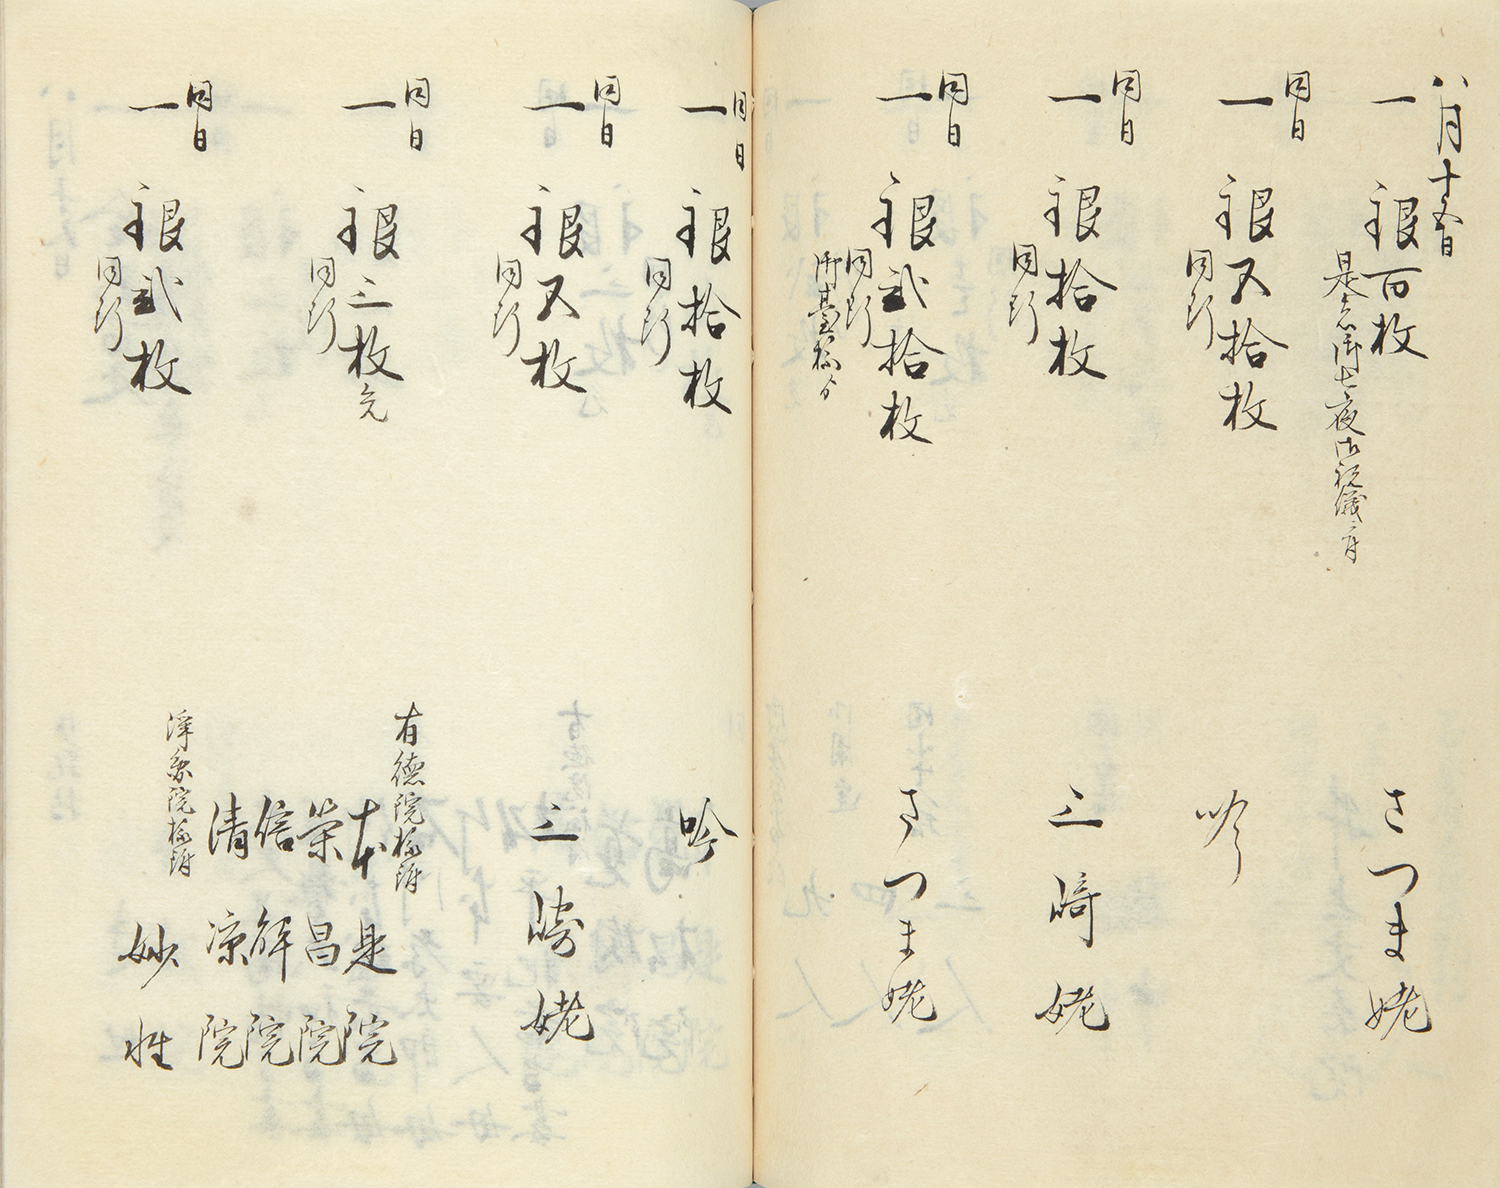 八月十五日
一銀百枚 さつま姥
是者御七夜御祝儀ニ付
同日
一銀五拾枚 吟
同断
同日
一銀拾枚 三﨑姥
同断
同日
一銀弐拾枚 さつま姥
同断
御臺様ゟ
同日
一銀拾枚 吟
同断
同日
一銀五枚 三﨑姥
同断
同日
一銀三枚充
有徳院様附
本是院
榮昌院
信解院
清凉院
同断
同日
一銀弐枚
浄岸院様附
妙性
同断